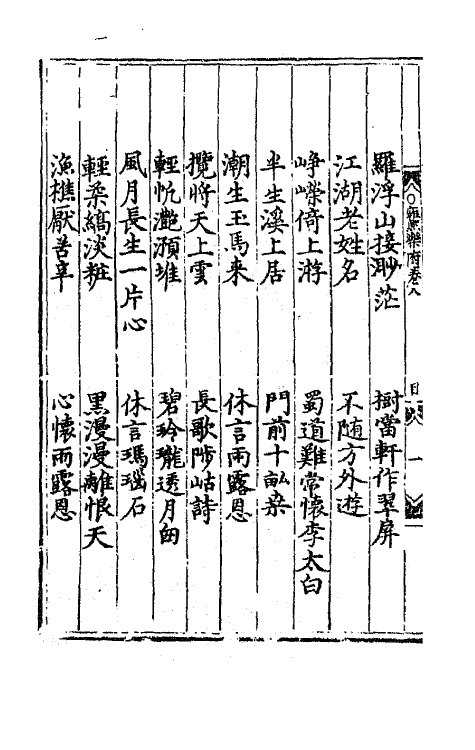 羅浮山接渺茫　樹當軒作翠屏
江湖老姓名　不随方外遊
崢嶸倚上游　蜀道難常懷李太白
半生溪上居　門前十畆桒
潮生玉馬來　休言雨露恩
攬將天上雲　長歌陟岵詩
輕帆灔澦堆　碧玲瓏透月囪
風月長生一片心　休言瑪瑙石
輕柔縞淡粧　黒漫漫離恨天
漁樵厭苦辛　心懷雨露恩
樂府卷八
目
一